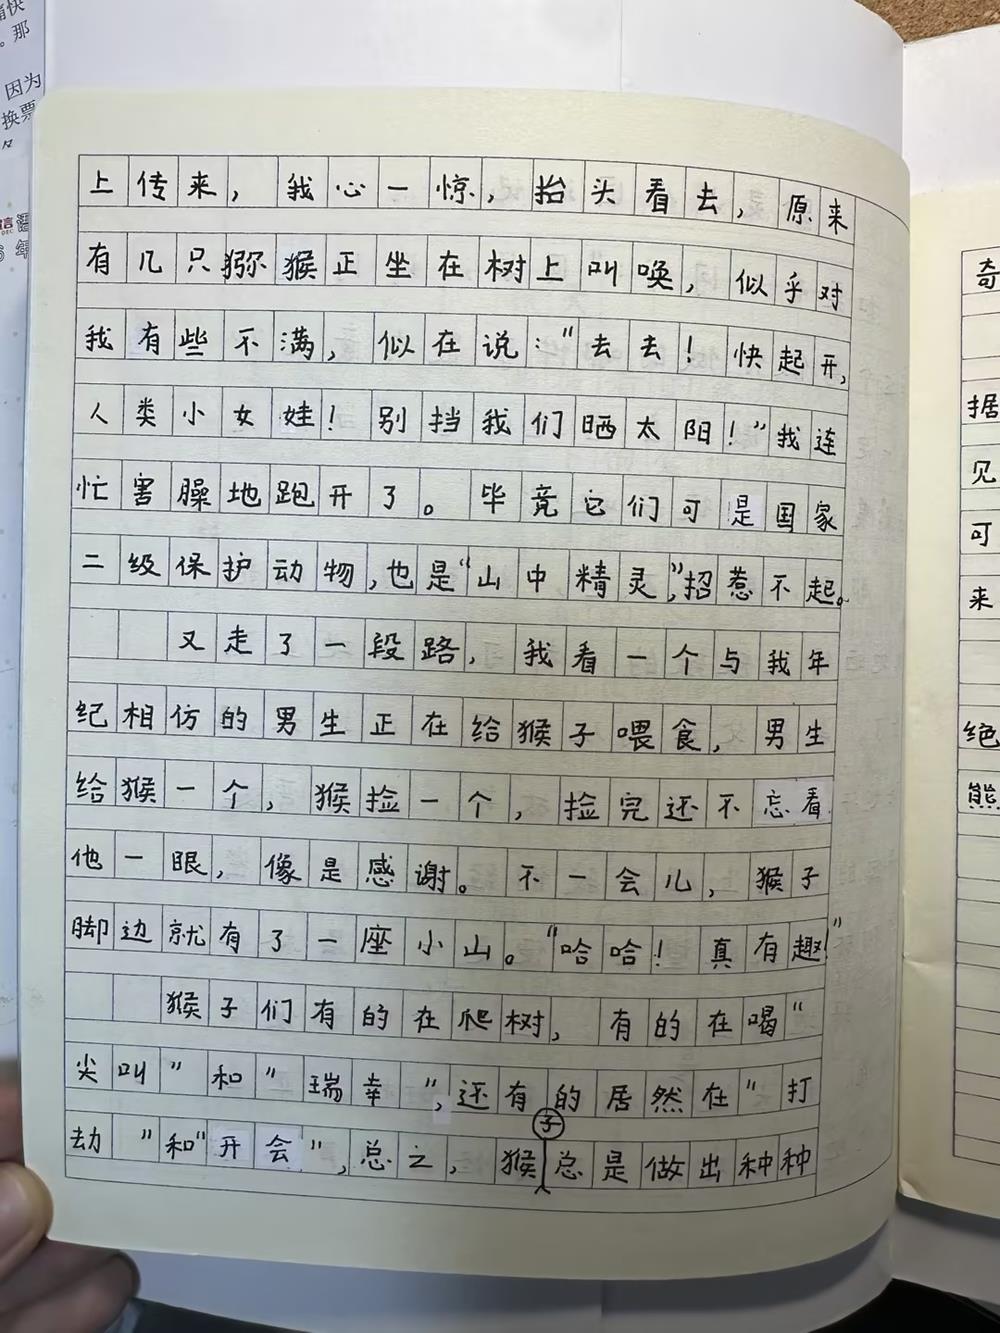 上传来，我心一惊，抬头看去，原来
有几只猕猴正坐在树上叫唤，似乎对
我有些不满，似在说：“去去！快起开，
人类小女娃！别挡我们晒太阳！”我连
忙害臊地跑开了。毕竟它们可是国家
二级保护动物，也是“山中精灵”，招惹不起。
又走了一段路，我看一个与我年
纪相仿的男生正在给猴子喂食，男生
给猴一个，猴捡一个，捡完还不忘看
他一眼，像是感谢。不一会儿，猴子
脚边就有了一座小山。“哈哈！真有趣！”
猴子们有的在爬树，有的在喝“
尖叫”和“瑞幸”，还有的居然在“打
劫”和“开会”，总之，猴子总是做出种种
痛快
。那
因为
换票
语
年
奇
据
见
可
来
绝
熊